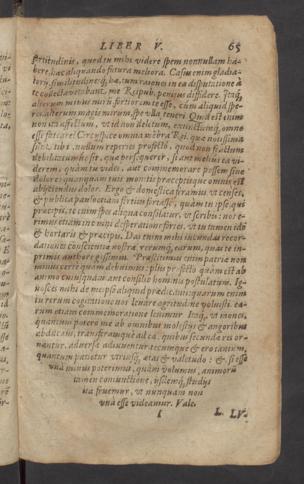 LIBER V. 65
fortitudinis, quod tu mihi videre spem nonnullam ha-
bere, hæc aliquando futura meliora. Casus enim gladia-
torij, similitudinesq́; hæ, tum rationes in ea disputatione à
te collectæ vetabant, me Reipub. penitus diffidere. Itaq́;
alterum minus miru fortiorem te esse, cum aliquid spe-
res: alterum magis mirum, spe vlla teneri. Quid est enim
non ita affectum, vt id non deletum, extinctumq́; omne
esse fateare? Circuspice omnia mẽbra Rei. quæ notissima
sunt tibi, nullum reperies profectò, quod non fractum
debilitatumue sit, quæ persequerer, si aut melius ea vi-
derem, quàm tu vides, aut commemorare possem sine
dolore: quanquam tuis monitis præceptisque omnis est
abijciendus dolor. Ergo & domestica feremus vt censes,
& publica paulò etiam fortius fortasse, quàm tu ipse qui
præcipis, te enim spes aliqua consolatur, vt scribis: nos e-
rimus etiam in omni desperatione fortes, vt tu tamen idẽ
& hortaris & præcipis. Das enim mihi iucundas recor-
dationes conscientiæ nostræ, rerumq́; earum, quas te in-
primis authore gessimus. Præstitimus enim patriæ non
minus certè quàm debuimus: plus profectò quàm est ab
animo cuiusquam aut consilio hominis postulatum. Ig-
nosces mihi de me ipso aliquid prædicãti: quarum enim
tu rerum cogitatione nos leuare ægritudine voluisti, ea-
rum etiam commemoratione lenimur. Itaq́; vt mones,
quantum potero me ab omnibus molestijs & angoribus
abducam, transferamq́ue ad ea, quibus secundæ res or-
nantur, aduersæ adiuuantur: tecumque & ero tantum,
quantum patietur vtriusq́; ætas & valetudo: & si esse
vnà minus poterimus, quàm volumus, animorũ
tamen coniunctione, ijsdemq́; studijs
ita fruemur, vt nunquam non
vnà esse videamur. Vale.
I L. LV-